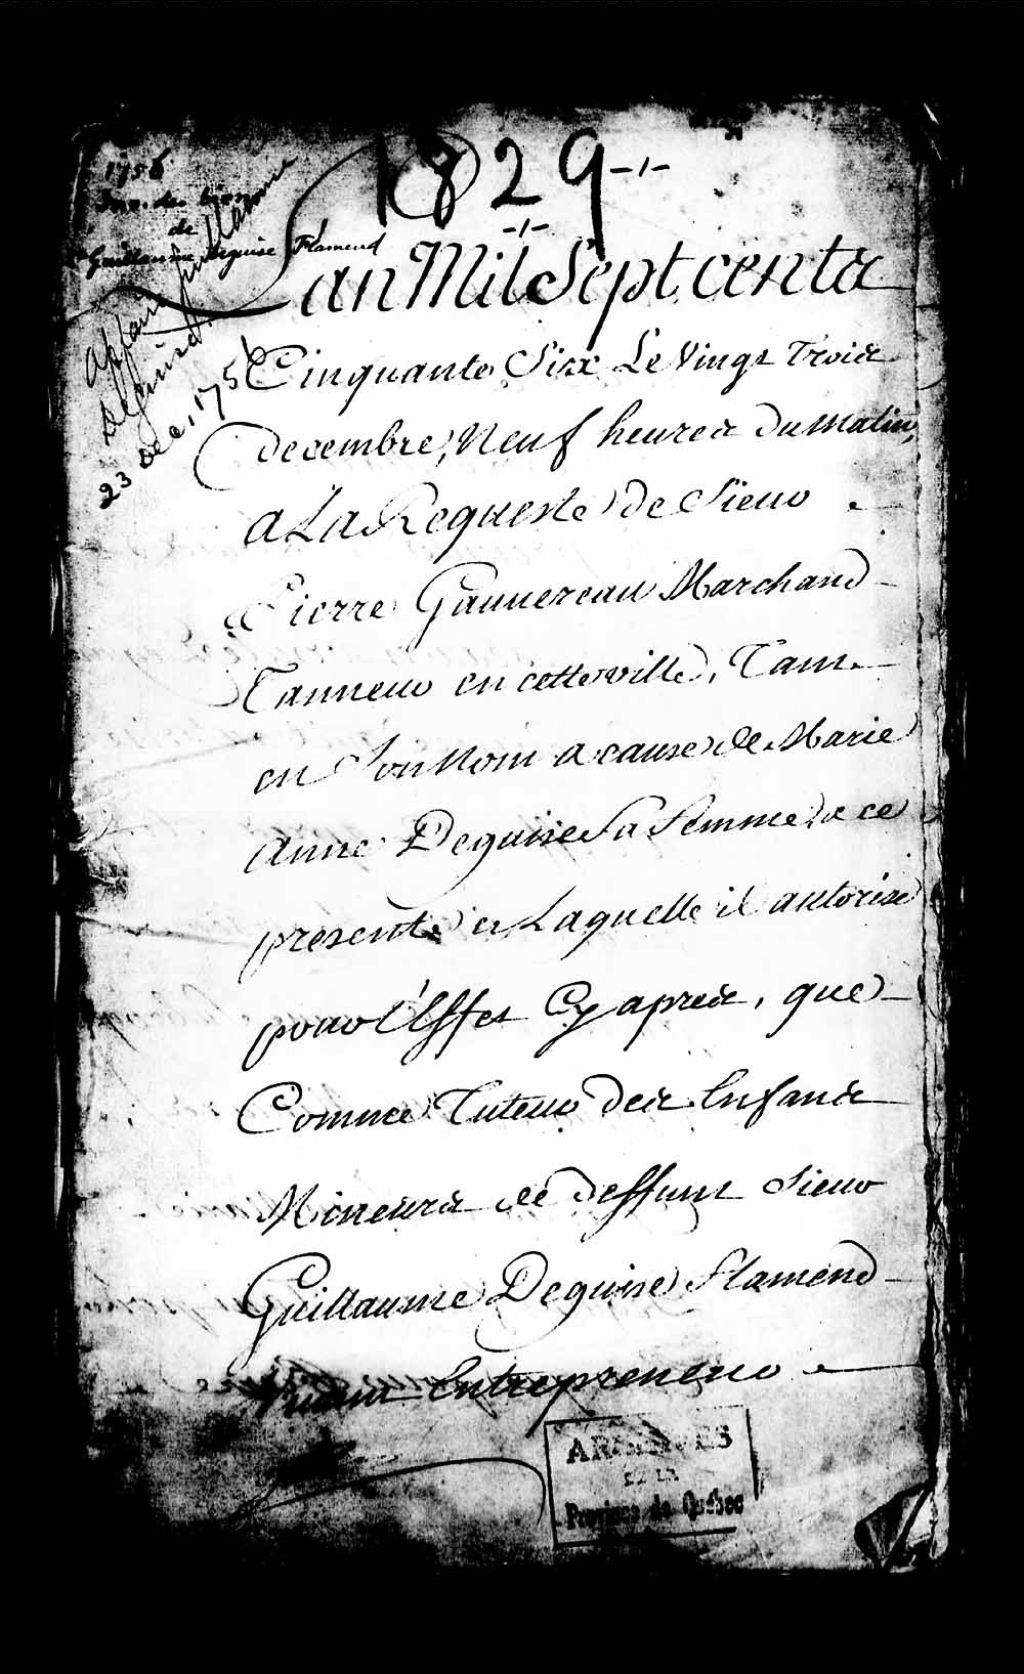 1829-/-
-/-
1756
Inv. des biens
de
Guillaume Deguise Flamend
Affaire
Deguise Flamme
23 Dec. 1756
Lan Mil Sept cents
Cinquante Six Le Vingt Trois
decembre, Neuf heures du Matin,
a La Requeste de Sieur
Pierre Gauuereau Marchand
Tanneur en cette ville, Tant
en Son Nom a cause de Marie
Anne Deguise Sa femme, a ce
presente et Laquelle il autorise
pour l'Effet Cy apres, que
Comme Tuteur des Enfans
Mineurs de deffunt Sieur
Guillaume Deguise Flamend
vivant Entrepreneur
ARCHIVES
DE LA
Province de Québec